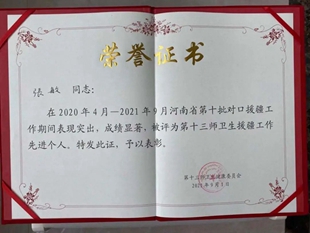 荣誉证书
张敏 同志：
在2020年4月—2021年9月河南省第十批对口援疆
工作期间表现突出，成绩显著，被评为第十三师卫生援疆工作
先进个人。特发此证，予以表彰。
第十三师卫生健康委员会